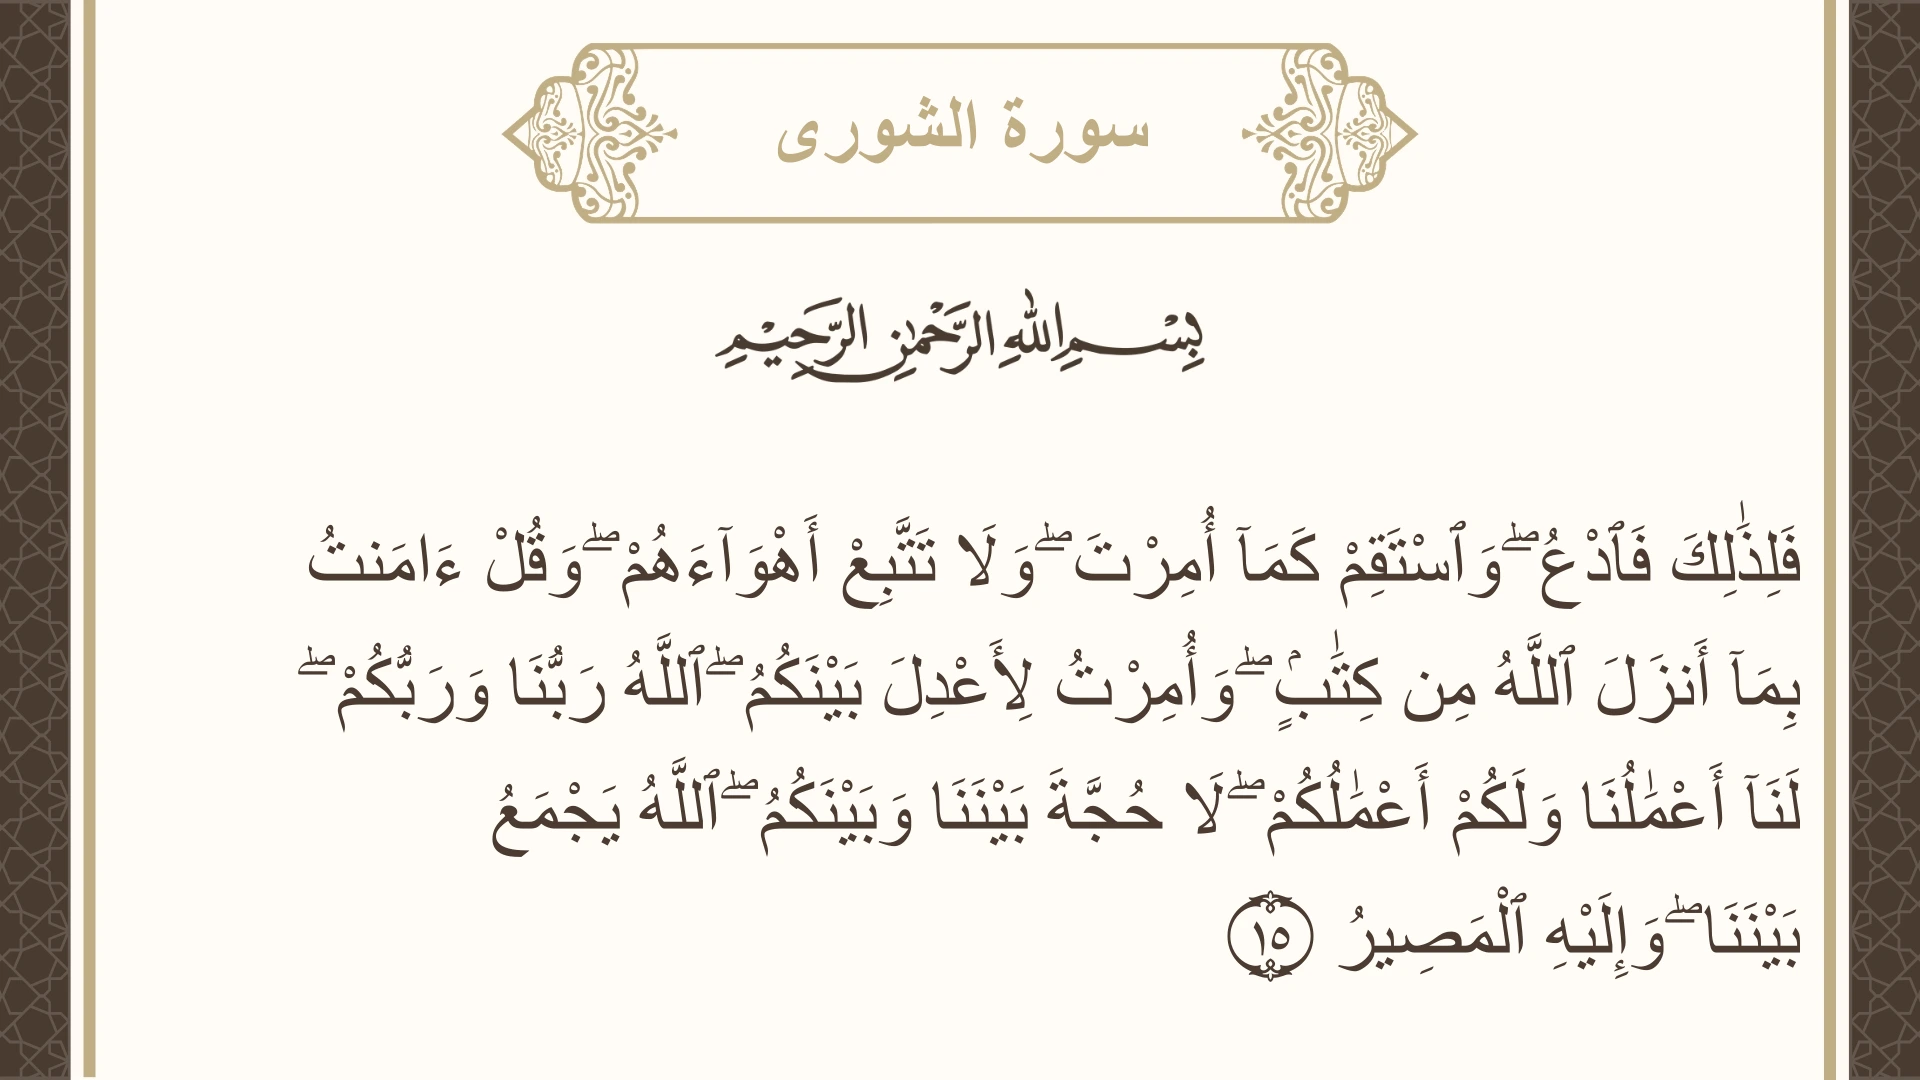 سورة الشورى
بِسْمِ اللهِ الرَّحْمٰنِ الرَّحِيْمِ
فَلِذَٰلِكَ فَٱدْعُ ۖ وَٱسْتَقِمْ كَمَآ أُمِرْتَ ۖ وَلَا تَتَّبِعْ أَهْوَآءَهُمْ ۖ وَقُلْ ءَامَنتُ
بِمَآ أَنزَلَ ٱللَّهُ مِن كِتَٰبٍۢ ۖ وَأُمِرْتُ لِأَعْدِلَ بَيْنَكُمُ ۖ ٱللَّهُ رَبُّنَا وَرَبُّكُمْ ۖ
لَنَآ أَعْمَٰلُنَا وَلَكُمْ أَعْمَٰلُكُمْ ۖ لَا حُجَّةَ بَيْنَنَا وَبَيْنَكُمُ ۖ ٱللَّهُ يَجْمَعُ
بَيْنَنَا ۖ وَإِلَيْهِ ٱلْمَصِيرُ ١٥